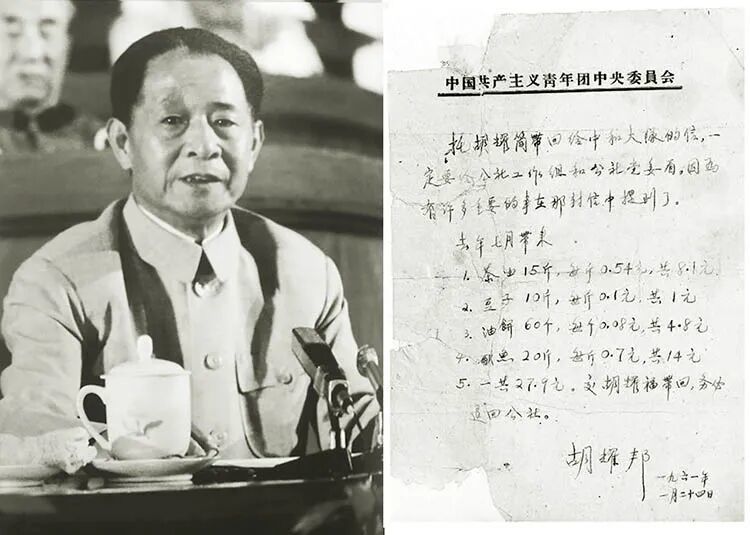 中国共产主义青年团中央委員会
托胡耀簡带回给中和大队的信,一
定要给公社工作组和公社党委看,因为
有许多重要的事在那封信中提到了。
去年七月带来
1. 茶油15斤,每斤0.54元,共8.1元
2. 豆子10斤,每斤0.1元,共1元
3. 油餅60斤,每斤0.08元,共4.8元
4. 鱼20斤,每斤0.7元,共14元
5. 一共27.9元。交胡耀福带回,务必
退回公社。
胡耀邦
一九六一年
一月二十四日